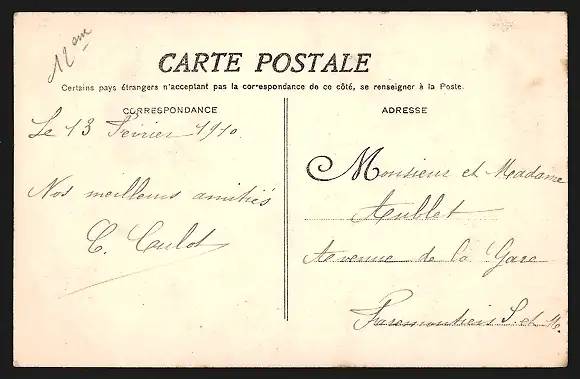 12em
CARTE POSTALE
Certains pays étrangers n'acceptant pas la correspondance de ce côté, se renseigner à la Poste.
CORRESPONDANCE
Le 13 Février 1910.
Nos meilleurs amitiés
C. Culot
ADRESSE
Monsieur et Madame
Aublet
Avenue de la Gare
Faremoutiers S. et M.